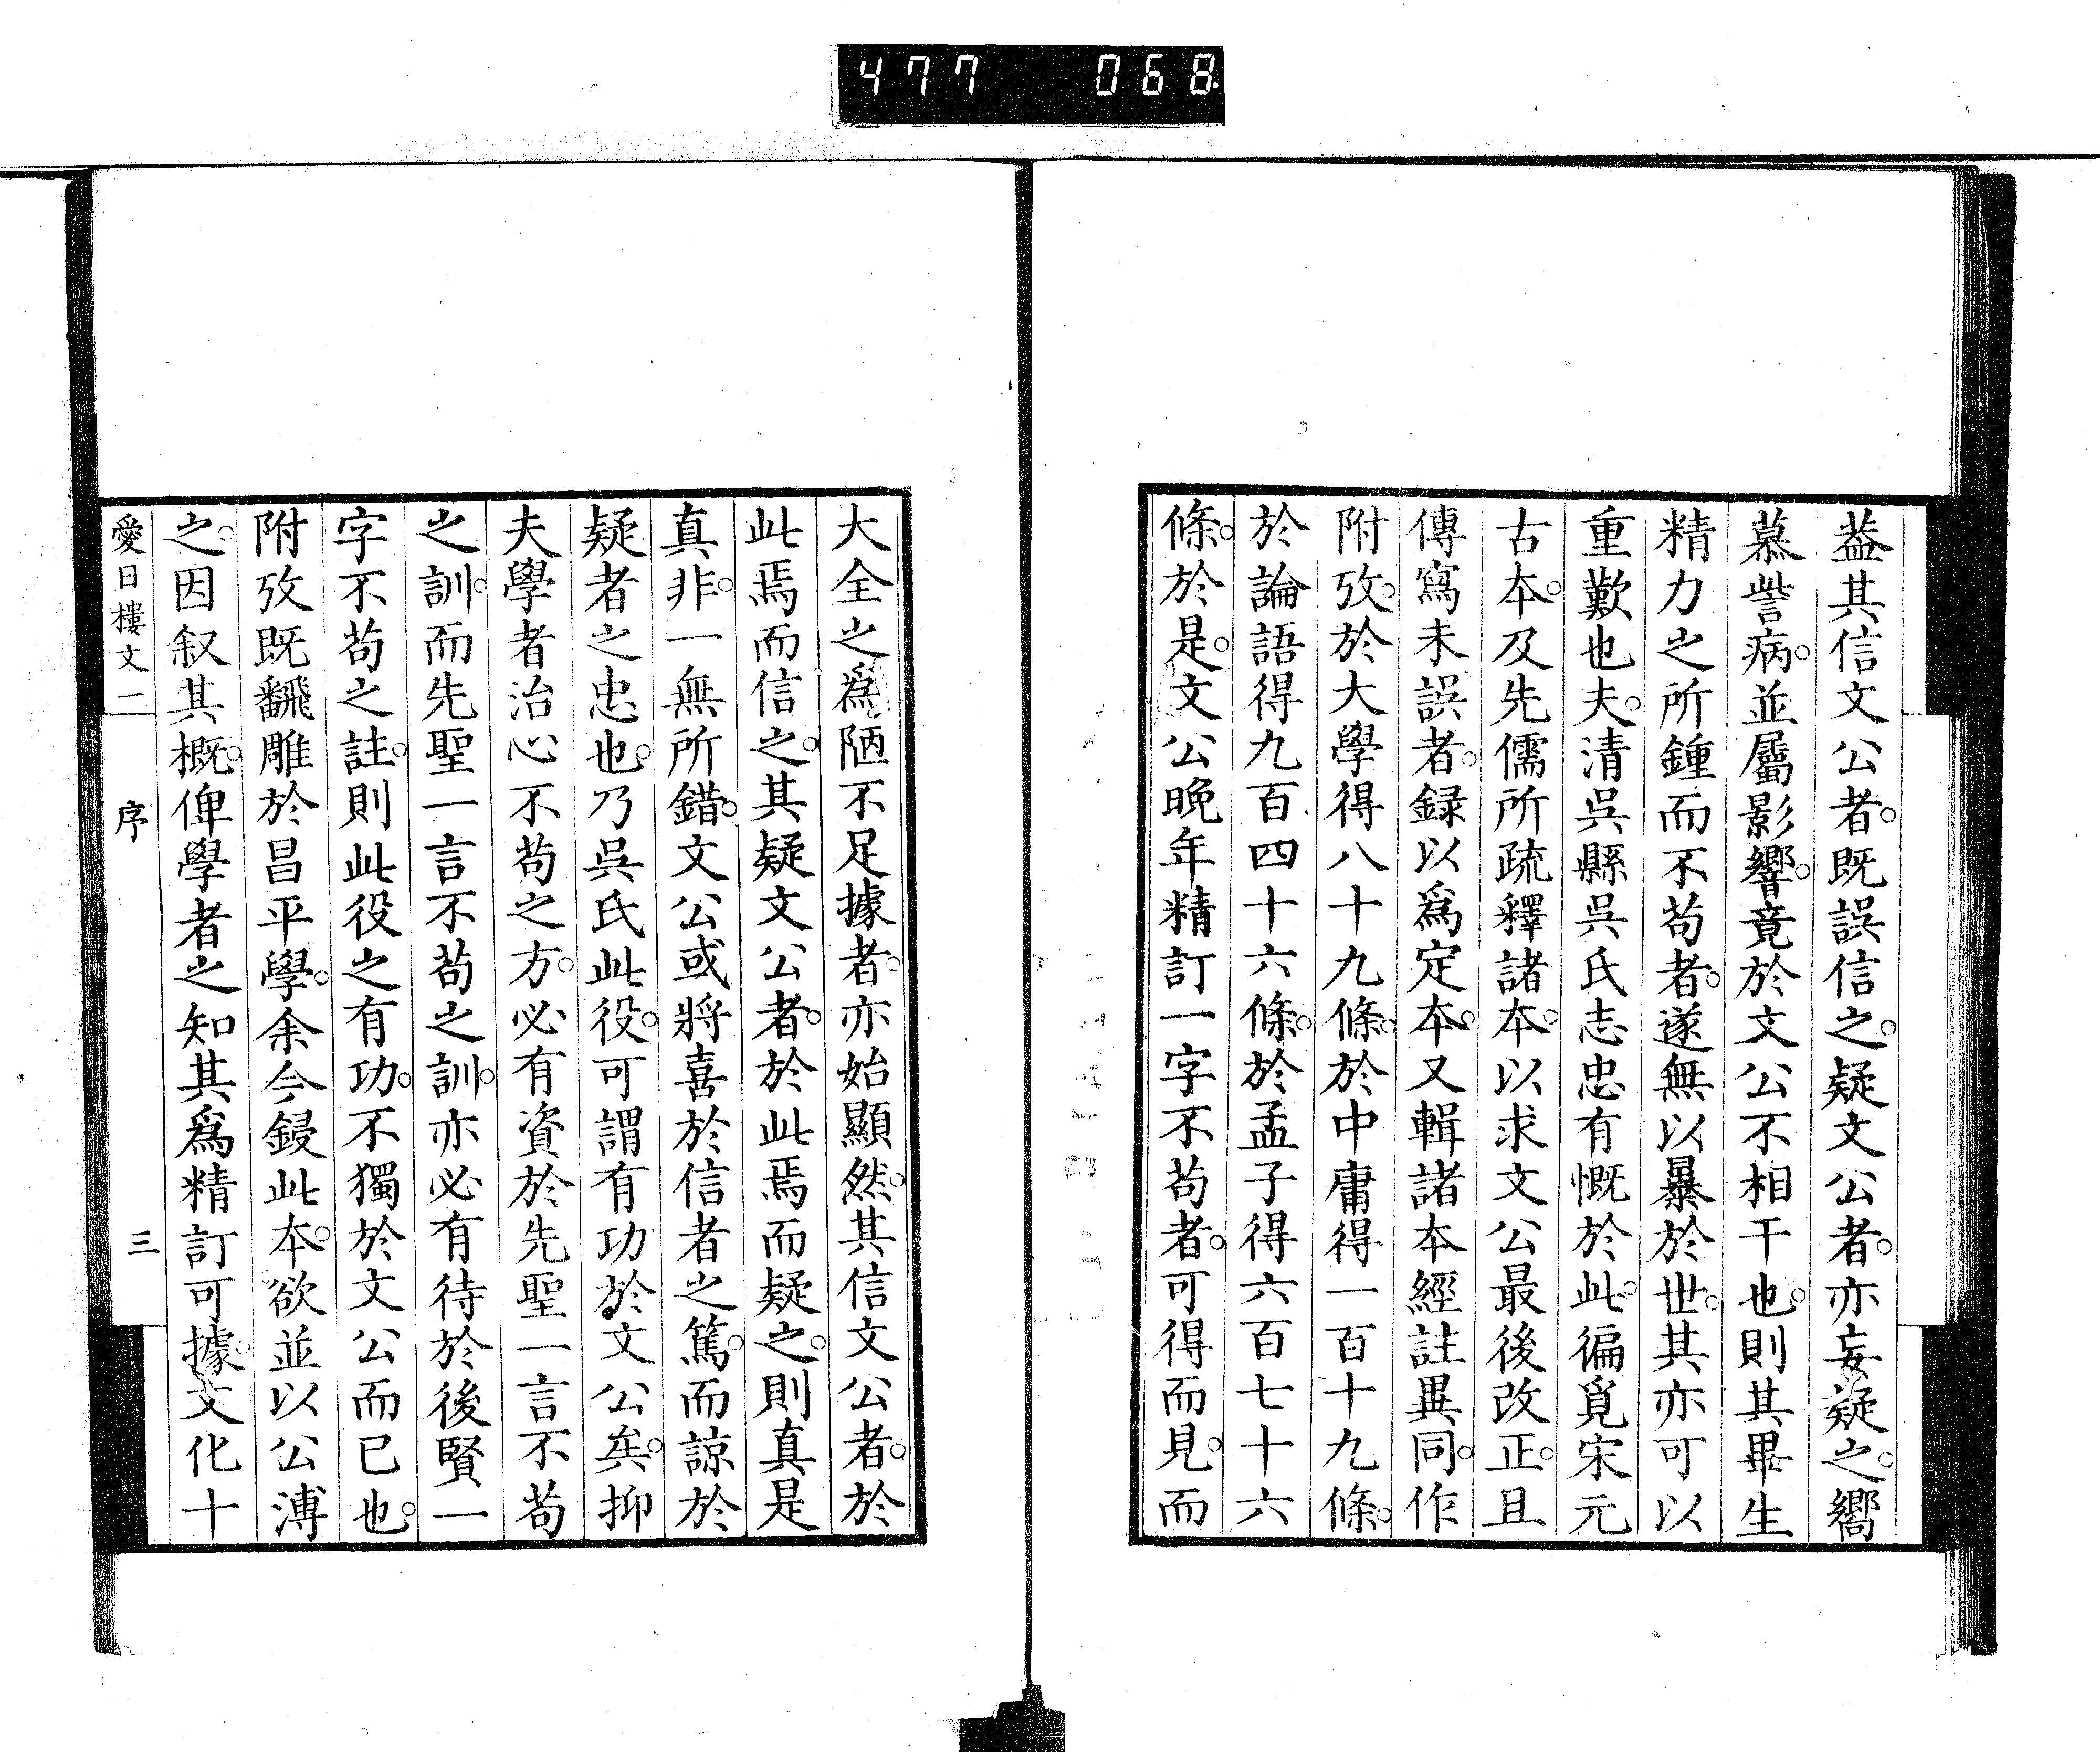 477 068
葢其信文公者。既誤信之。疑文公者。亦妄疑之。嚮
慕訾病。並屬影響。竟於文公不相干也。則其畢生
精力之所鍾而不苟者。遂無以暴於世。其亦可以
重歎也夫。清吳縣吳氏志忠有慨於此。徧覓宋元
古本。及先儒所疏釋諸本。以求文公最後改正。且
傳寫未誤者。録以爲定本。又輯諸本經註異同。作
附攷。於大學得八十九條。於中庸得一百十九條。
於論語得九百四十六條。於孟子得六百七十六
條。於是。文公晚年精訂一字不苟者。可得而見。而
大全之爲陋不足據者。亦始顯然。其信文公者。於
此焉而信之。其疑文公者。於此焉而疑之。則真是
真非。一無所錯。文公或將喜於信者之篤。而諒於
疑者之忠也。乃吳氏此役。可謂有功於文公矣。抑
夫學者治心不苟之方。必有資於先聖一言不苟
之訓。而先聖一言不苟之訓。亦必有待於後賢一
字不苟之註。則此役之有功。不獨於文公而已也。
附攷既飜雕於昌平學。余今鋟此本。欲並以公溥
之。因叙其概。俾學者之知其爲精訂可據。文化十
愛日樓文一 序 三